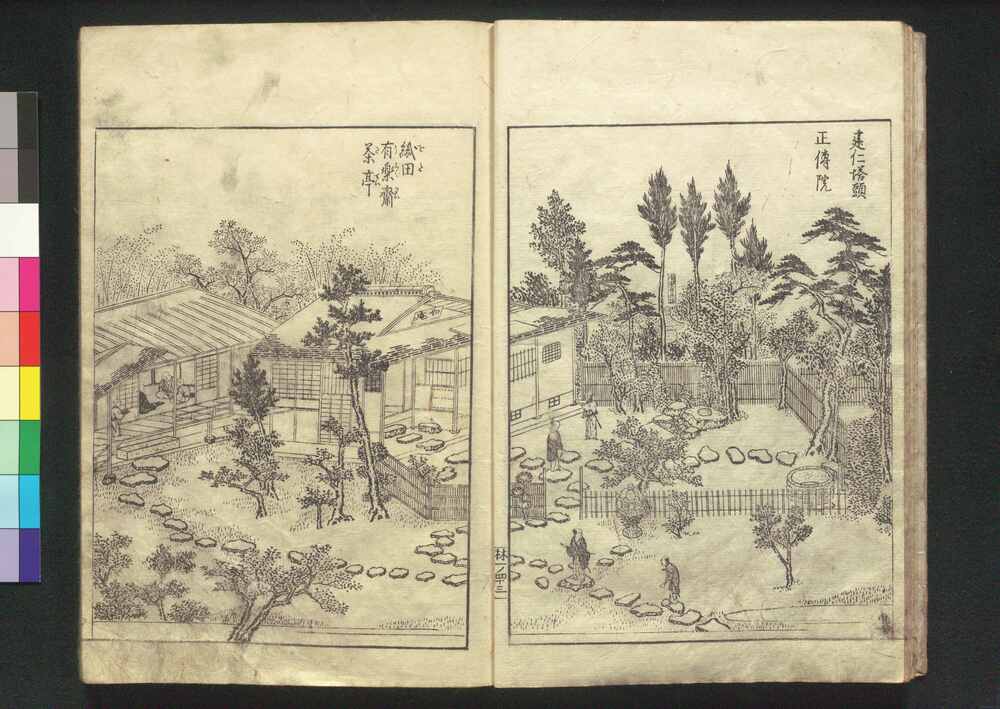 建仁塔頭
正傳院
織田
有樂齋
茶亭
林ノ四十三